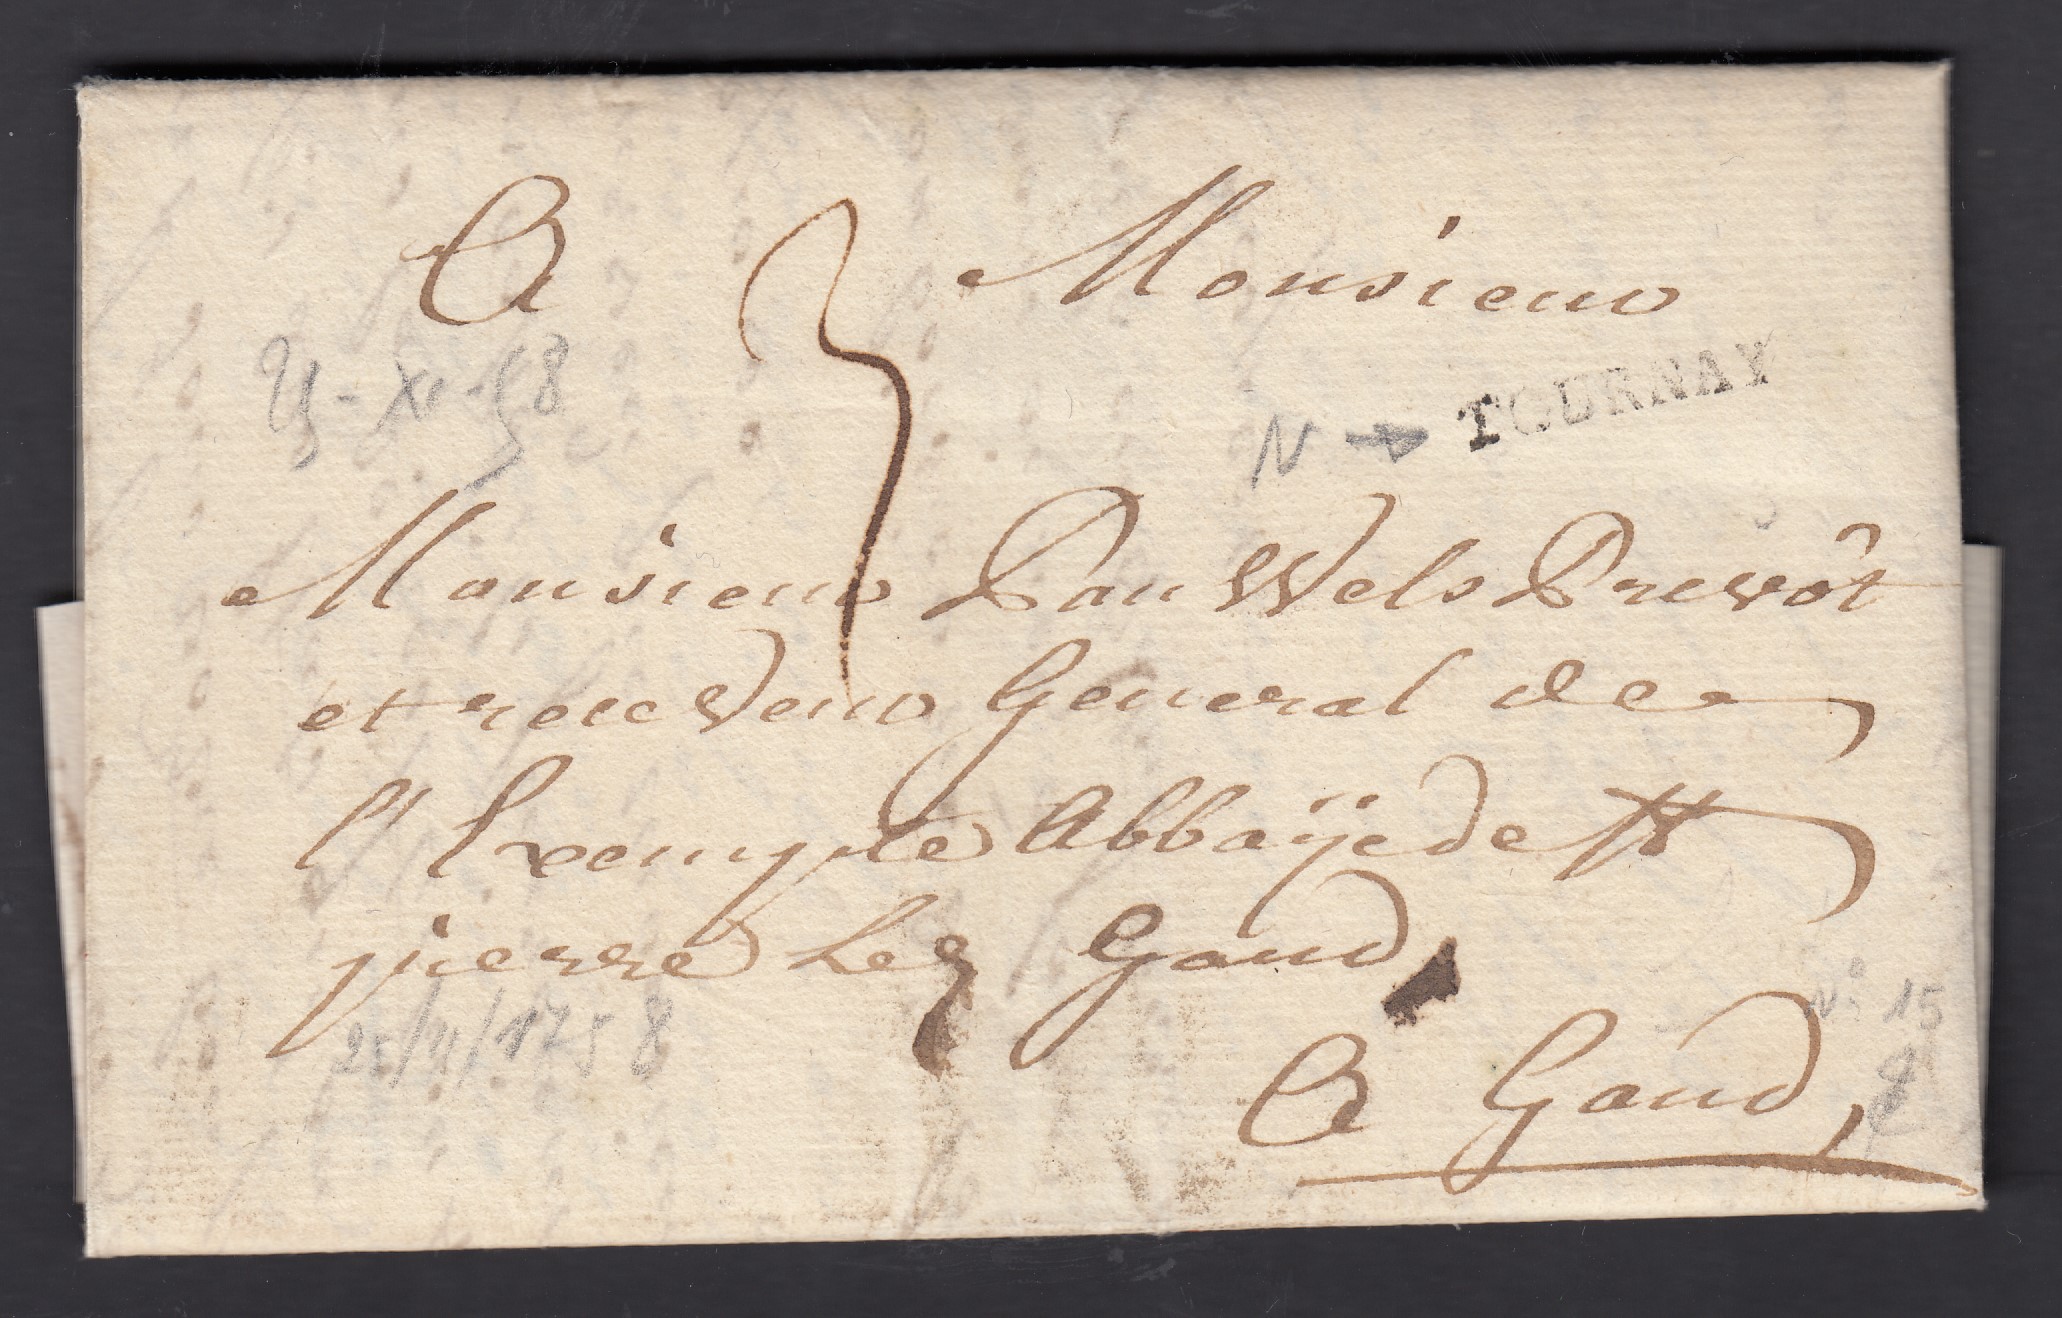 A 3 Monsieur
25-XI-58
N → TOURNAY
Monsieur PauWels Prevôt
et receveur General de
l'Exempte Abbaÿe de St
pierre Lez Gand
25/11/1758
N° 15
A Gand